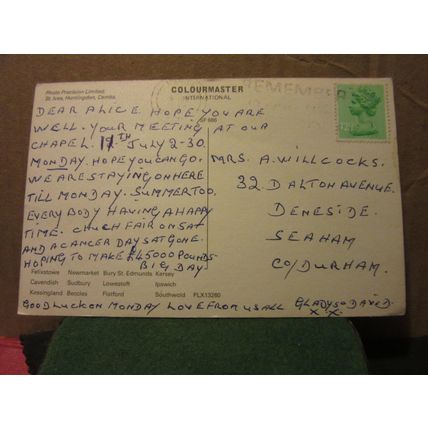 Photo Precision Limited,
St Ives, Huntingdon, Cambs.
COLOURMASTER
INTERNATIONAL
REMEMBER
DEAR ALICE HOPE YOU ARE
WELL. YOUR MEETING AT OUR
CHAPEL. 11TH JULY 2-30.
MONDAY. HOPE YOU CAN GO.
WE ARE STAYING ON HERE
TILL MONDAY. SUMMER TOO.
EVERY BODY HAVING A HAPPY
TIME. CHUCH FAIR ON SAT
AND A CANCER DAY SAT GONE.
HOPING TO MAKE £45000 POUNDS
BIG DAY
MRS. A. WILLCOCKS.
32 DALTON AVENUE.
DENESIDE.
SEAHAM
CO/DURHAM.
Felixstowe Newmarket Bury St. Edmunds Kersey
Cavendish Sudbury Lowestoft Ipswich
Kessingland Beccles Flatford Southwold FLX13260
GOOD LUCK ON MONDAY LOVE FROM US ALL GLADYS &
X X